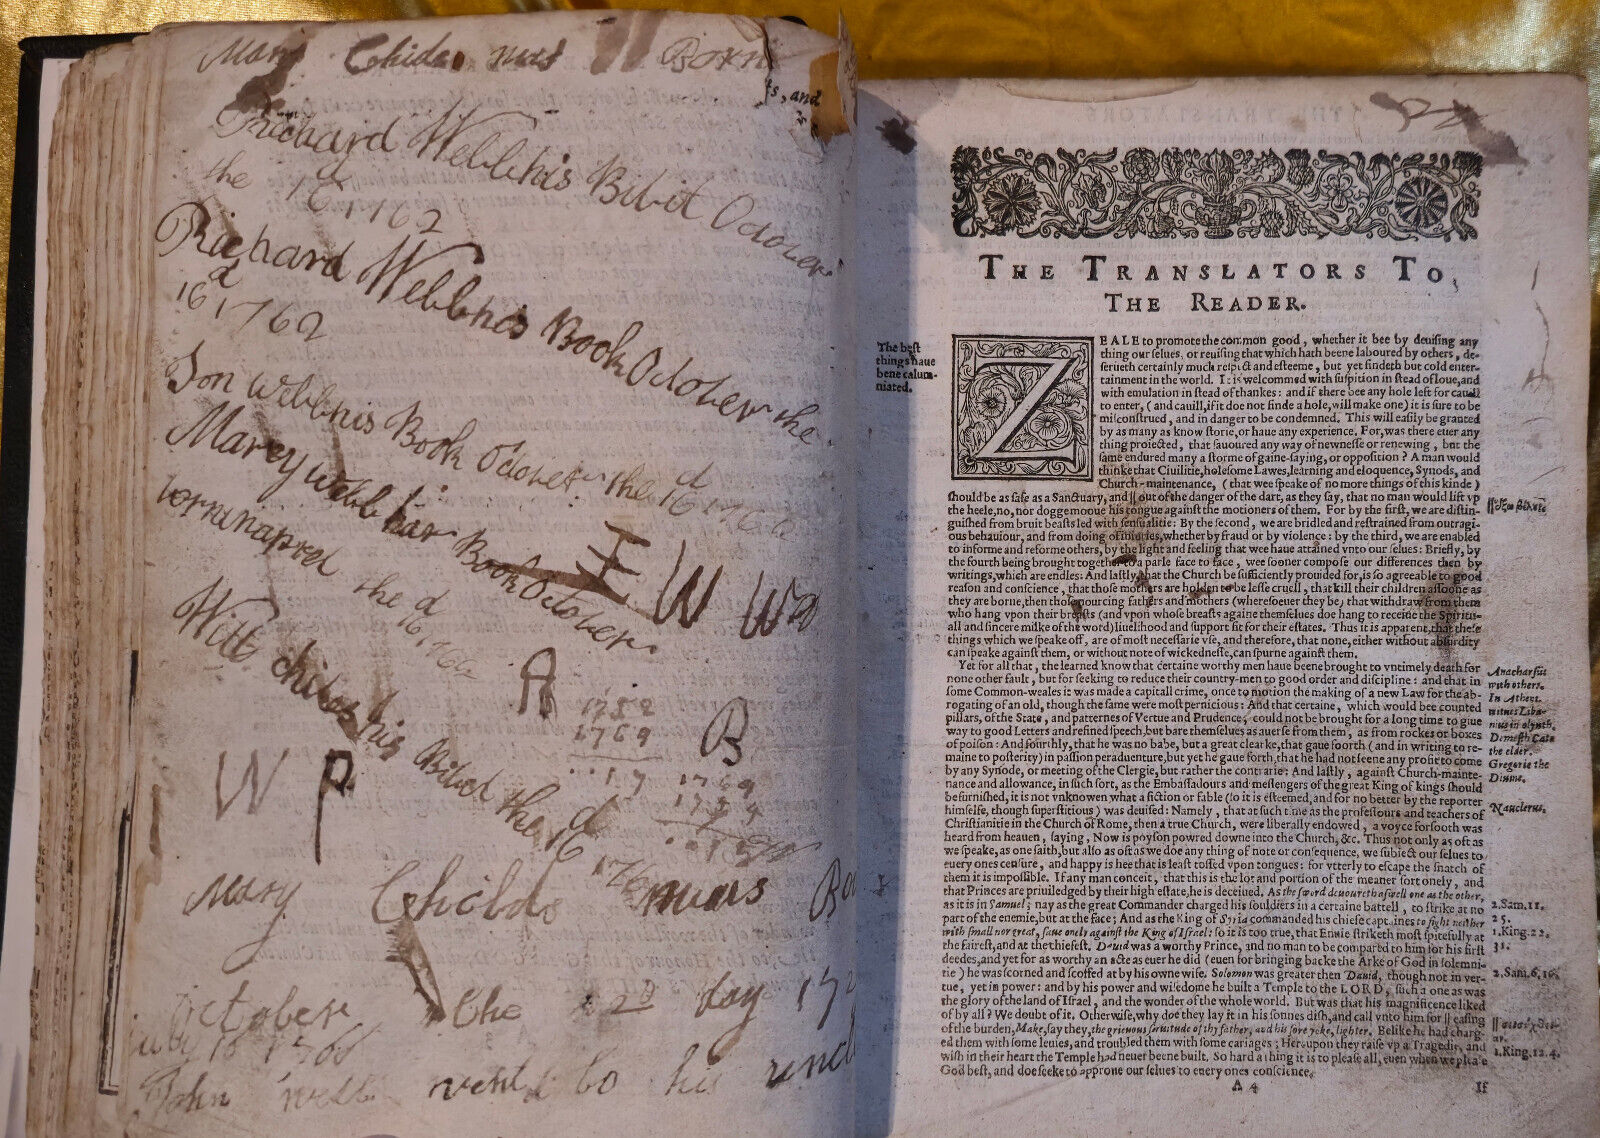 Mary Childs was Born
ts, and
Richard Webb his Bibel October
the 16 1762
Richard Webb his Book October the
16 d 1762
Jon webb his Book October the 16 d 1762
Marey webb har Book October
the d 16 1762
I W W
Will childs his Bibel the 16 d
176
A
1752
1769
17
B
1769
W P
Mary Childs was Bo
October the 22 day 17
July 16 1766
John webb went to his uncl
THE TRANSLATORS TO
THE READER.
The best
things haue
bene calum-
niated.
ZEALE to promote the common good, whether it bee by deuising any
thing our selues, or reuising that which hath beene laboured by others, de-
serueth certainly much respect and esteeme, but yet findeth but cold enter-
tainment in the world. It is welcommed with suspition in stead of loue, and
with emulation in stead of thankes: and if there bee any hole left for cauill
to enter, (and cauill, if it doe not finde a hole, will make one) it is sure to be
misconstrued, and in danger to be condemned. This will easily be granted
by as many as know storie, or haue any experience. For, was there euer any
thing proiected, that sauoured any way of newnesse or renewing, but the
same endured many a storme of gaine-saying, or opposition? A man would
thinke that Ciuilitie, holesome Lawes, learning and eloquence, Synods, and
Church-maintenance, (that wee speake of no more things of this kinde)
should be as safe as a Sanctuary, and || out of the danger of the dart, as they say, that no man would lift vp
the heele, no, nor dogge mooue his tongue against the motioners of them. For by the first, we are distin-
guished from bruit beasts led with sensualitie: By the second, we are bridled and restrained from outragi-
ous behauiour, and from doing of iniuries, whether by fraud or by violence: by the third, we are enabled
to informe and reforme others, by the light and feeling that wee haue attained vnto our selues: Briefly, by
the fourth being brought together to a parle face to face, wee sooner compose our differences then by
writings, which are endles: And lastly, that the Church be sufficiently prouided for, is so agreeable to good
reason and conscience, that those mothers are holden to be lesse cruell, that kill their children assoone as
they are borne, then those nourcing fathers and mothers (wheresoeuer they be) that withdraw from them
who hang vpon their breasts (and vpon whose breasts againe themselues doe hang to receiue the Spiritu-
all and sincere milke of the word) liuelihood and support fit for their estates. Thus it is apparent, that these
things which we speake off, are of most necessarie vse, and therefore, that none, either without absurdity
can speake against them, or without note of wickednesse, can spurne against them.
Yet for all that, the learned know that certaine worthy men haue beene brought to vntimely death for
none other fault, but for seeking to reduce their country-men to good order and discipline: and that in
some Common-weales it was made a capitall crime, once to motion the making of a new Law for the ab-
rogating of an old, though the same were most pernicious: And that certaine, which would bee counted
pillars, of the State, and patternes of Vertue and Prudence, could not be brought for a long time to giue
way to good Letters and refined speech, but bare themselues as auerse from them, as from rockes or boxes
of poison: And fourthly, that he was no babe, but a great clearke, that gaue foorth (and in writing to re-
maine to posterity) in passion peraduenture, but yet he gaue forth, that he had not seene any profit to come
by any Synode, or meeting of the Clergie, but rather the contrarie: And lastly, against Church-mainte-
nance and allowance, in such sort, as the Embassadours and messengers of the great King of kings should
be furnished, it is not vnknowen what a fiction or fable (so it is esteemed, and for no better by the reporter
himselfe, though superstitious) was deuised: Namely, that at such time as the professours and teachers of
Christianitie in the Church of Rome, then a true Church, were liberally endowed, a voyce forsooth was
heard from heauen, saying, Now is poyson powred downe into the Church, &c. Thus not only as oft as
we speake, as one saith, but also as oft as we doe any thing of note or consequence, we subiect our selues to
euery ones censure, and happy is hee that is least tossed vpon tongues: for vtterly to escape the snatch of
them it is impossible. If any man conceit, that this is the lot and portion of the meaner sort onely, and
that Princes are priuiledged by their high estate, he is deceiued. As the sword deuoureth aswell one as the other,
as it is in Samuel; nay as the great Commander charged his souldiers in a certaine battell, to strike at no
part of the enemie, but at the face; And as the King of Syria commanded his chiefe captaines to fight neither
with small nor great, saue onely against the King of Israel: so it is too true, that Enuie striketh most spitefully at
the fairest, and at the chiefest. Dauid was a worthy Prince, and no man to be compared to him for his first
deedes, and yet for as worthy an acte as euer he did (euen for bringing backe the Arke of God in solemni-
tie) he was scorned and scoffed at by his owne wife. Solomon was greater then Dauid, though not in ver-
tue, yet in power: and by his power and wisedome he built a Temple to the LORD, such a one as was
the glory of the land of Israel, and the wonder of the whole world. But was that his magnificence liked
of by all? We doubt of it. Otherwise, why doe they lay it in his sonnes dish, and call vnto him for || easing
of the burden, Make, say they, the grieuous seruitude of thy father, and his sore yoke, lighter. Belike he had charg-
ed them with some leuies, and troubled them with some cariages; Hereupon they raise vp a Tragedie, and
wish in their heart the Temple had neuer beene built. So hard a thing it is to please all, euen when we please
God best, and doe seeke to approue our selues to euery ones conscience.
Anacharsis
with others.
In Athens
witnes Liba-
nius in olynth.
Demosth. Cato
the elder.
Gregorie the
Diuine.
Nauclerus.
2.Sam.11.
25.
1.King.22.
31.
2.Sam.6.16.
1.King.12.4.
A 4
If